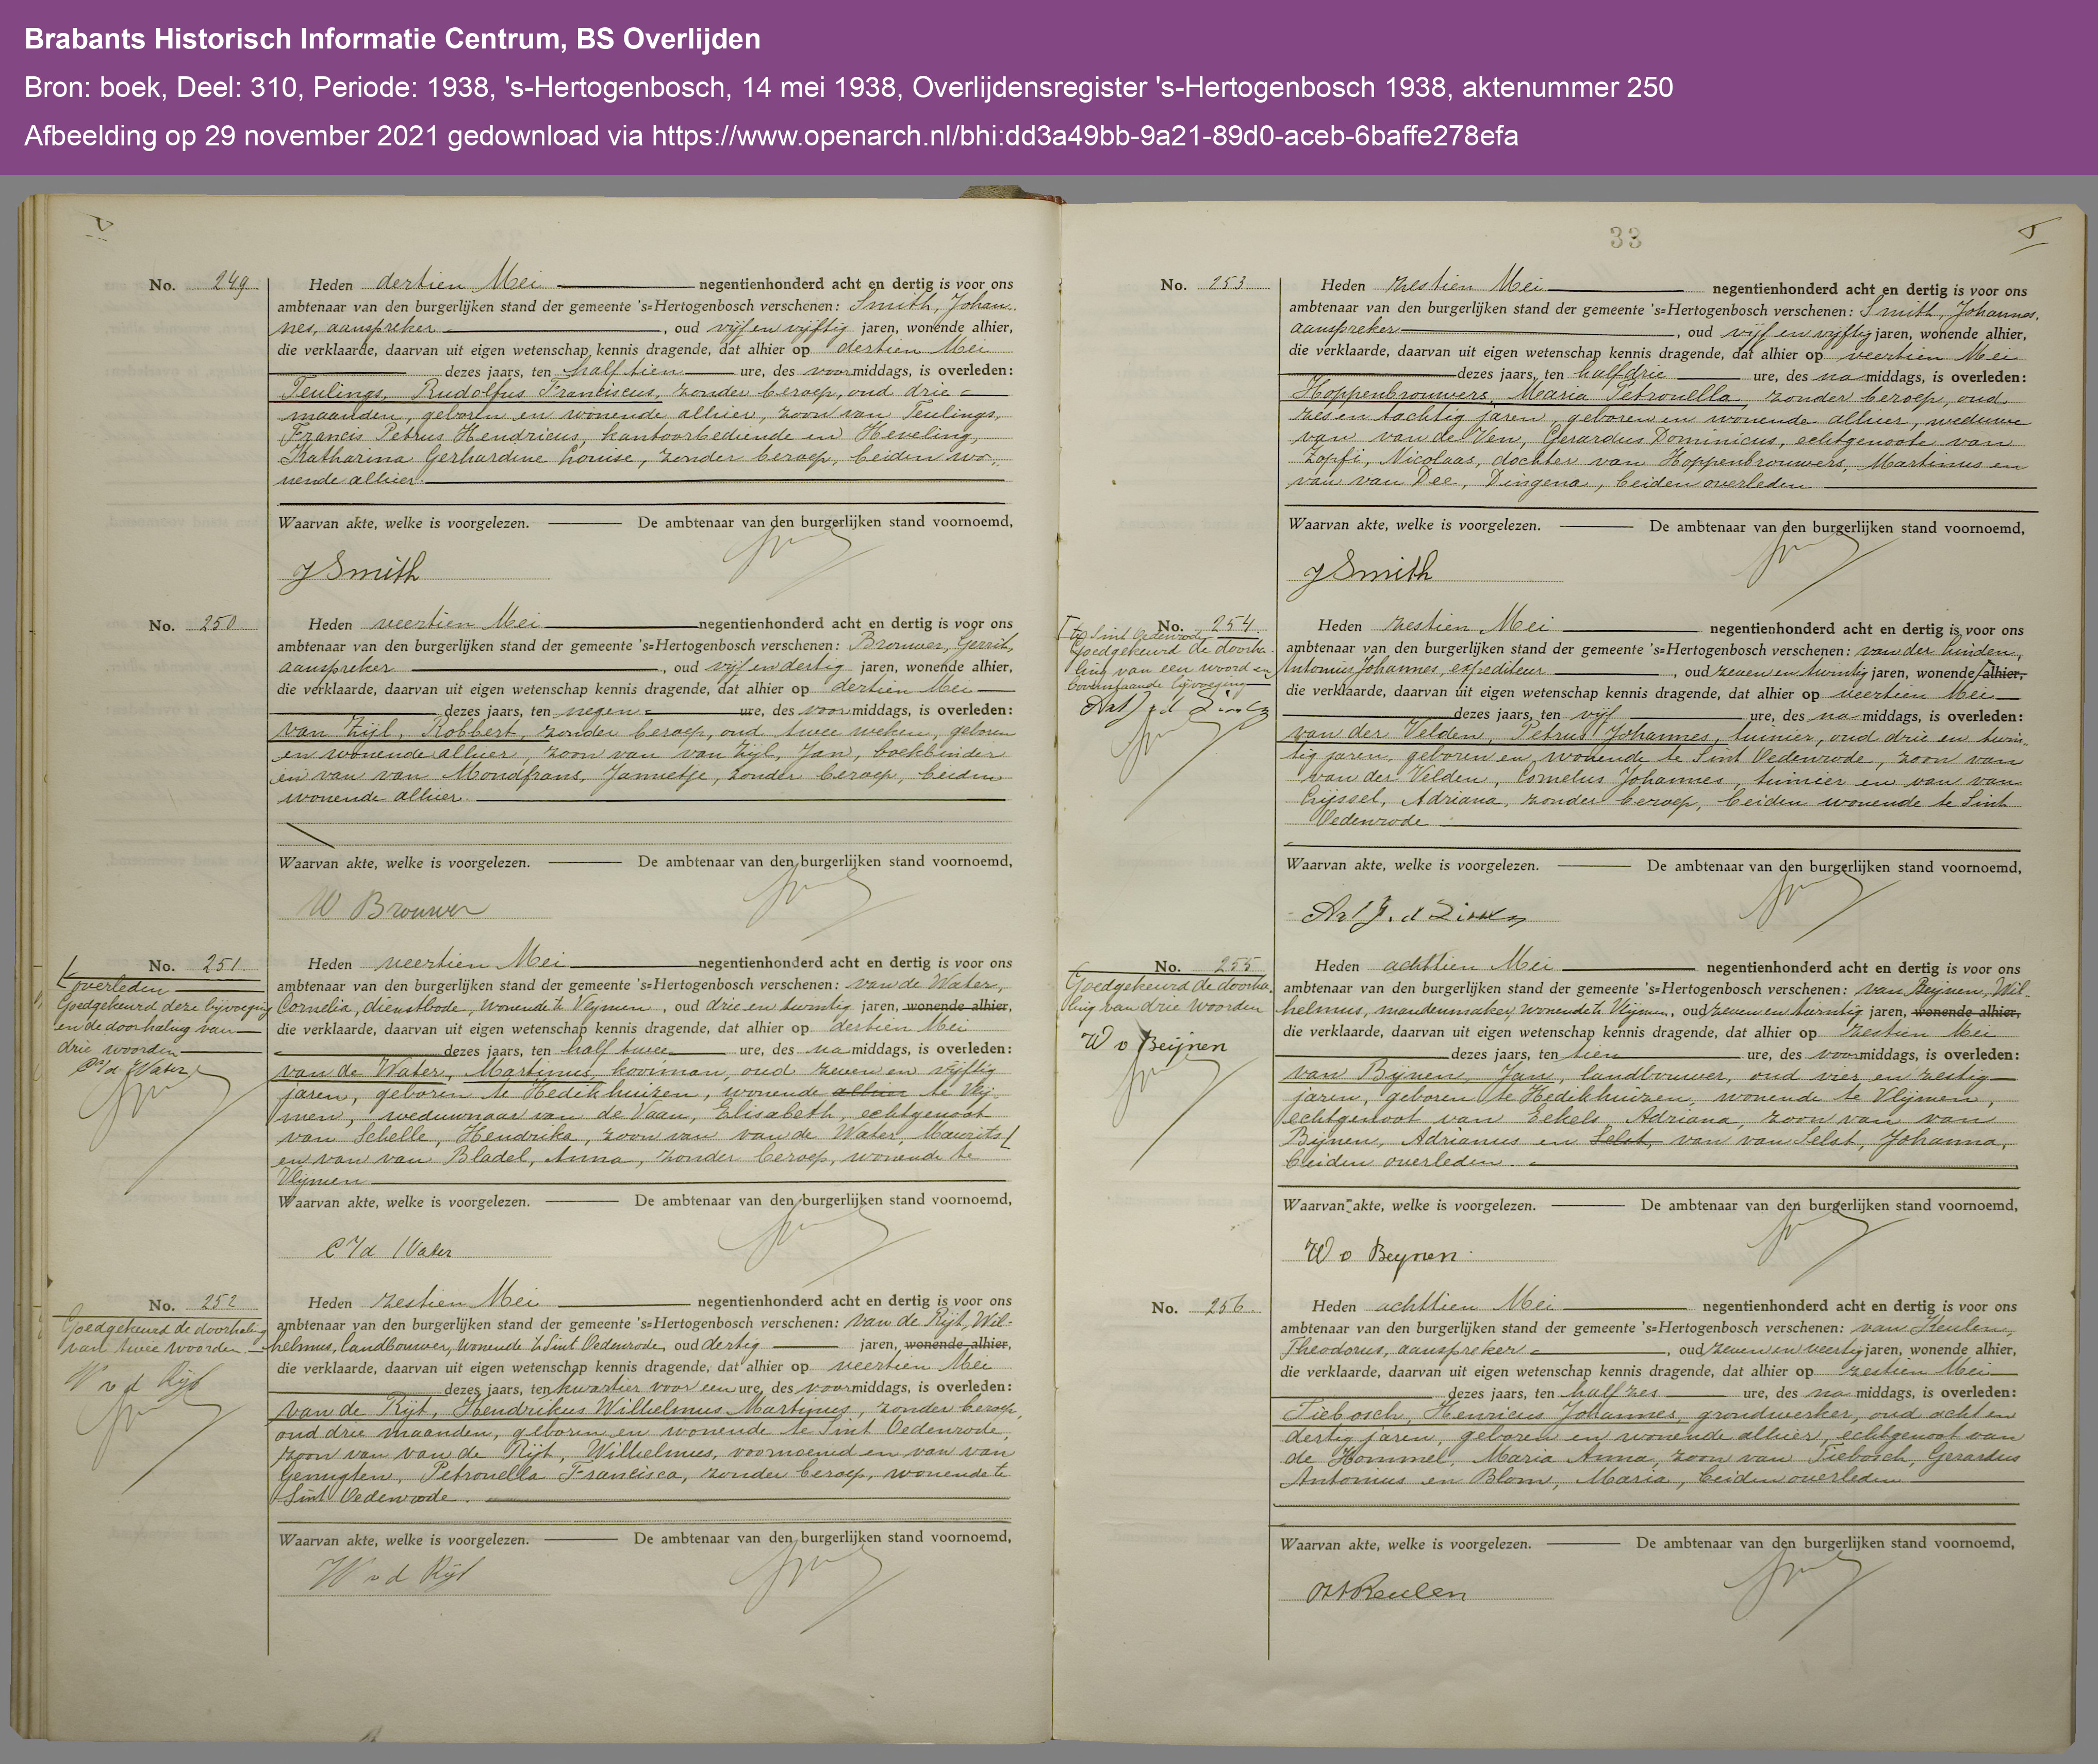 Brabants Historisch Informatie Centrum, BS Overlijden
Bron: boek, Deel: 310, Periode: 1938, 's-Hertogenbosch, 14 mei 1938, Overlijdensregister 's-Hertogenbosch 1938, aktenummer 250
Afbeelding op 29 november 2021 gedownload via https://www.openarch.nl/bhi:dd3a49bb-9a21-89d0-aceb-6baffe278efa
No. 249.
Heden dertien Mei negentienhonderd acht en dertig is voor ons
ambtenaar van den burgerlijken stand der gemeente 's=Hertogenbosch verschenen: Smith, Johan-
nes, aanspreker, oud vijf en vijftig jaren, wonende alhier,
die verklaarde, daarvan uit eigen wetenschap kennis dragende, dat alhier op dertien Mei
dezes jaars, ten half tien ure, des voormiddags, is overleden:
Teulings, Rudolfus Franciscus, zonder beroep, oud drie
maanden, geboren en wonende alhier, zoon van Teulings,
Francis Petrus Hendricus, kantoorbediende en Heveling,
Katharina Gerhardine Louise, zonder beroep, beiden wo-
nende alhier.
Waarvan akte, welke is voorgelezen. De ambtenaar van den burgerlijken stand voornoemd,
J Smith
No. 250
Heden veertien Mei negentienhonderd acht en dertig is voor ons
ambtenaar van den burgerlijken stand der gemeente 's=Hertogenbosch verschenen: Brouwer, Gerrit,
aanspreker, oud vijf en dertig jaren, wonende alhier,
die verklaarde, daarvan uit eigen wetenschap kennis dragende, dat alhier op dertien Mei
dezes jaars, ten negen ure, des voormiddags, is overleden:
van Zijl, Robbert, zonder beroep, oud twee weken, geboren
en wonende alhier, zoon van van Zijl, Jan, boekbinder
en van van Mondfrans, Jannetje, zonder beroep, beiden
wonende alhier.
Waarvan akte, welke is voorgelezen. De ambtenaar van den burgerlijken stand voornoemd,
W Brouwer
No. 251.
overleden
Goedgekeurd deze bijvoeging
en de doorhaling van
drie woorden
C v d Water
Heden veertien Mei negentienhonderd acht en dertig is voor ons
ambtenaar van den burgerlijken stand der gemeente 's=Hertogenbosch verschenen: van de Water,
Cornelia, dienstbode, wonende te Vlijmen, oud drie en twintig jaren, wonende alhier,
die verklaarde, daarvan uit eigen wetenschap kennis dragende, dat alhier op dertien Mei
dezes jaars, ten half twee ure, des namiddags, is overleden:
van de Water, Martinus, kooiman, oud zeven en vijftig
jaren, geboren te Hedikhuizen, wonende alhier te Vlij-
men, weduwnaar van de Vaan, Elisabeth, echtgenoot
van Schelle, Hendrika, zoon van van de Water, Maurits
en van van Bladel, Anna, zonder beroep, wonende te
Vlijmen
Waarvan akte, welke is voorgelezen. De ambtenaar van den burgerlijken stand voornoemd,
C v d Water
No. 252
Goedgekeurd de doorhaling
van twee woorden
W v d Rijt
Heden zestien Mei negentienhonderd acht en dertig is voor ons
ambtenaar van den burgerlijken stand der gemeente 's=Hertogenbosch verschenen: van de Rijt, Wil-
helmus, landbouwer, wonende te Sint Oedenrode, oud dertig jaren, wonende alhier,
die verklaarde, daarvan uit eigen wetenschap kennis dragende, dat alhier op veertien Mei
dezes jaars, ten kwartier voor een ure, des voormiddags, is overleden:
van de Rijt, Hendrikus Wilhelmus Martinus, zonder beroep,
oud drie maanden, geboren en wonende te Sint Oedenrode,
zoon van van de Rijt, Wilhelmus, voornoemd en van van
Genugten, Petronella Francisca, zonder beroep, wonende te
Sint Oedenrode.
Waarvan akte, welke is voorgelezen. De ambtenaar van den burgerlijken stand voornoemd,
W v d Rijt
33
No. 253
Heden zestien Mei negentienhonderd acht en dertig is voor ons
ambtenaar van den burgerlijken stand der gemeente 's=Hertogenbosch verschenen: Smith, Johannes,
aanspreker, oud vijf en vijftig jaren, wonende alhier,
die verklaarde, daarvan uit eigen wetenschap kennis dragende, dat alhier op veertien Mei
dezes jaars, ten half drie ure, des namiddags, is overleden:
Hoppenbrouwers, Maria Petronella, zonder beroep, oud
zes en tachtig jaren, geboren en wonende alhier, weduwe
van van de Ven, Gerardus Dominicus, echtgenoote van
Zopfi, Nicolaas, dochter van Hoppenbrouwers, Martinus en
van van Dee, Dingena, beiden overleden
Waarvan akte, welke is voorgelezen. De ambtenaar van den burgerlijken stand voornoemd,
J Smith
No. 254.
te Sint Oedenrode
Goedgekeurd de doorha-
ling van een woord en
bovenstaande bijvoeging
Heden zestien Mei negentienhonderd acht en dertig is voor ons
ambtenaar van den burgerlijken stand der gemeente 's=Hertogenbosch verschenen: van der Linden,
Antonius Johannes, expediteur, oud zeven en twintig jaren, wonende alhier,
die verklaarde, daarvan uit eigen wetenschap kennis dragende, dat alhier op veertien Mei
dezes jaars, ten vijf ure, des namiddags, is overleden:
van der Velden, Petrus Johannes, tuinier, oud drie en twin-
tig jaren, geboren en wonende te Sint Oedenrode, zoon van
van der Velden, Cornelus Johannes, tuinier en van van
Lijssel, Adriana, zonder beroep, beiden wonende te Sint
Oedenrode
Waarvan akte, welke is voorgelezen. De ambtenaar van den burgerlijken stand voornoemd,
No. 255
Goedgekeurd de doorha-
ling van drie woorden
W v Beijnen
Heden achttien Mei negentienhonderd acht en dertig is voor ons
ambtenaar van den burgerlijken stand der gemeente 's=Hertogenbosch verschenen: van Beijnen, Wil-
helmus, mandenmaker, wonende te Vlijmen, oud zeven en twintig jaren, wonende alhier,
die verklaarde, daarvan uit eigen wetenschap kennis dragende, dat alhier op zestien Mei
dezes jaars, ten tien ure, des voormiddags, is overleden:
van Bijnen, Jan, landbouwer, oud vier en zestig
jaren, geboren te Hedikhuizen, wonende te Vlijmen,
echtgenoot van Eekels, Adriana, zoon van van
Bijnen, Adrianus en Selst, van van Selst, Johanna,
beiden overleden.
Waarvan akte, welke is voorgelezen. De ambtenaar van den burgerlijken stand voornoemd,
W v Beynen
No. 256.
Heden achttien Mei negentienhonderd acht en dertig is voor ons
ambtenaar van den burgerlijken stand der gemeente 's=Hertogenbosch verschenen: van Keulen,
Theodorus, aanspreker, oud zeven en veertig jaren, wonende alhier,
die verklaarde, daarvan uit eigen wetenschap kennis dragende, dat alhier op zestien Mei
dezes jaars, ten half zes ure, des namiddags, is overleden:
Tiebosch, Henricus Johannes, grondwerker, oud acht en
dertig jaren, geboren en wonende alhier, echtgenoot van
de Hommel, Maria Anna, zoon van Tiebosch, Gerardus
Antonius en Blom, Maria, beiden overleden
Waarvan akte, welke is voorgelezen. De ambtenaar van den burgerlijken stand voornoemd,